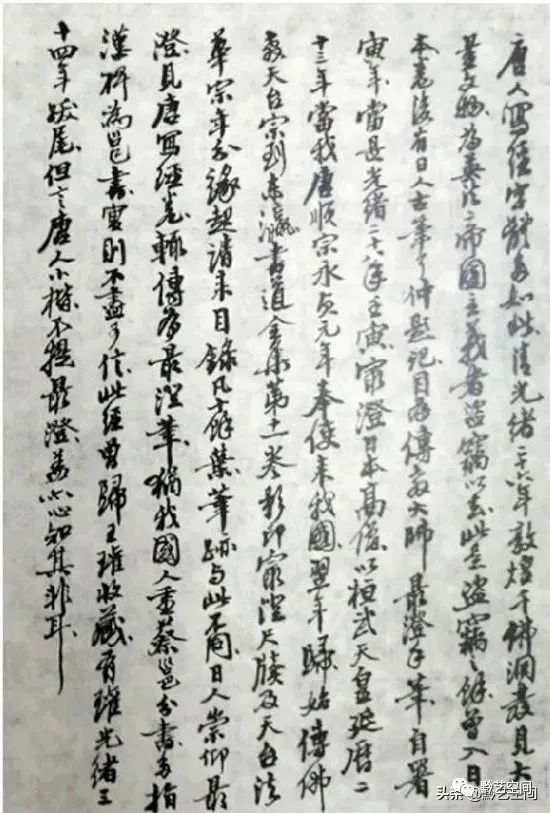 唐人寫經字體多如此清光緒二十六年敦煌千佛洞發見大
量文物為英法帝國主義者盜竊以去此是盜竊之餘曾入日
本卷後有日人古筆了仲題記目為傳教大師最澄手筆自署
寅年當是光緒二十八年壬寅最澄日本高僧以桓武天皇延曆二
十三年當我唐順宗永貞元年奉使來我國翌年歸始傳佛
教天台宗到東瀛書道全集第十一卷影印最澄尺牘及天台法
華宗年分緣起請來目錄凡葉筆跡與此不同日人崇仰最
澄見唐寫經卷輒傳為最澄筆猶我國人重蔡邕分書多指
漢碑為邕書實則不盡可信此經曾歸王瓘收藏有瓘光緒三
十四年跋尾但言唐人小楷不提最澄蓋心知其非耳
黔艺空间
头条 @黔艺空间